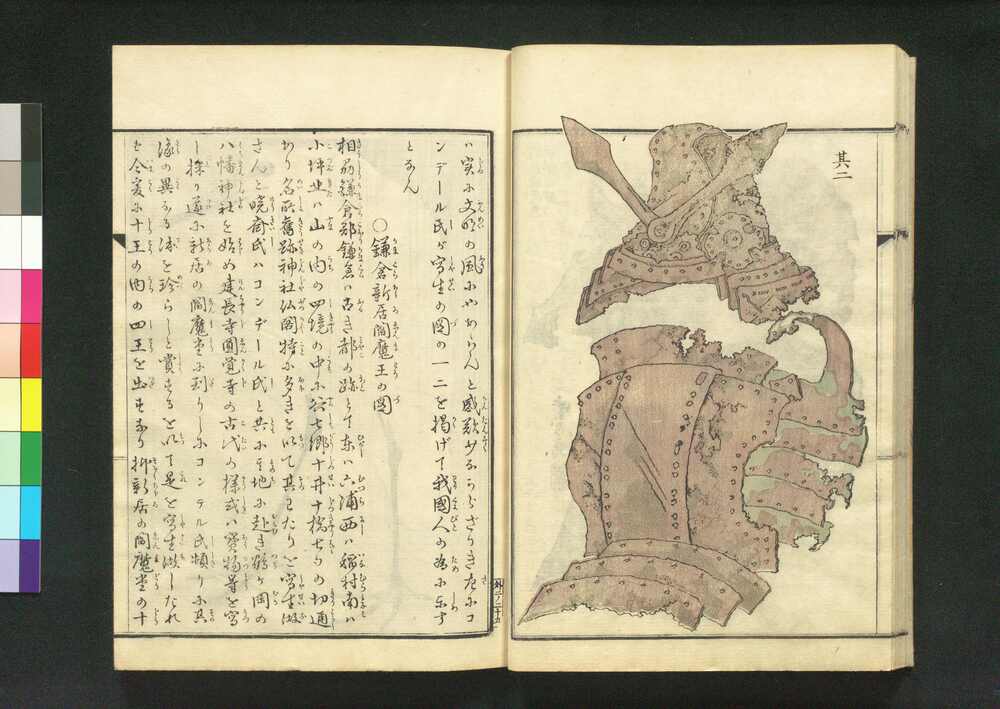 其二
ハ実に文明の風にやあらんと感歎少なからざりき左にコ
ンデール氏が写生の図の一二を掲げて我國人の為に示す
となん
○鎌倉新居閻魔王の図
相刕鎌倉郡鎌倉ハ古き都の跡とて東ハ六浦西ハ稲村南ハ
小坪北ハ山の内の四境の中に谷七郷十井十橋七ツの切通
あり名所舊跡神社仏閣特に多きを以て其わたりを写生做
さんと暁斎氏ハコンデール氏と共に其地に赴き鶴ヶ岡の
八幡神社を始め建長寺圓覚寺の古代の様式ハ寳物等を写
し採り遂に新居の閻魔堂に到りしにコンテル氏頻りに其
像の異なる を珍らしと賞するを以て是を写生做したれ
を今爰に十王の内の四王を出すなり抑新居の閻魔堂の十
外二ノ二十五